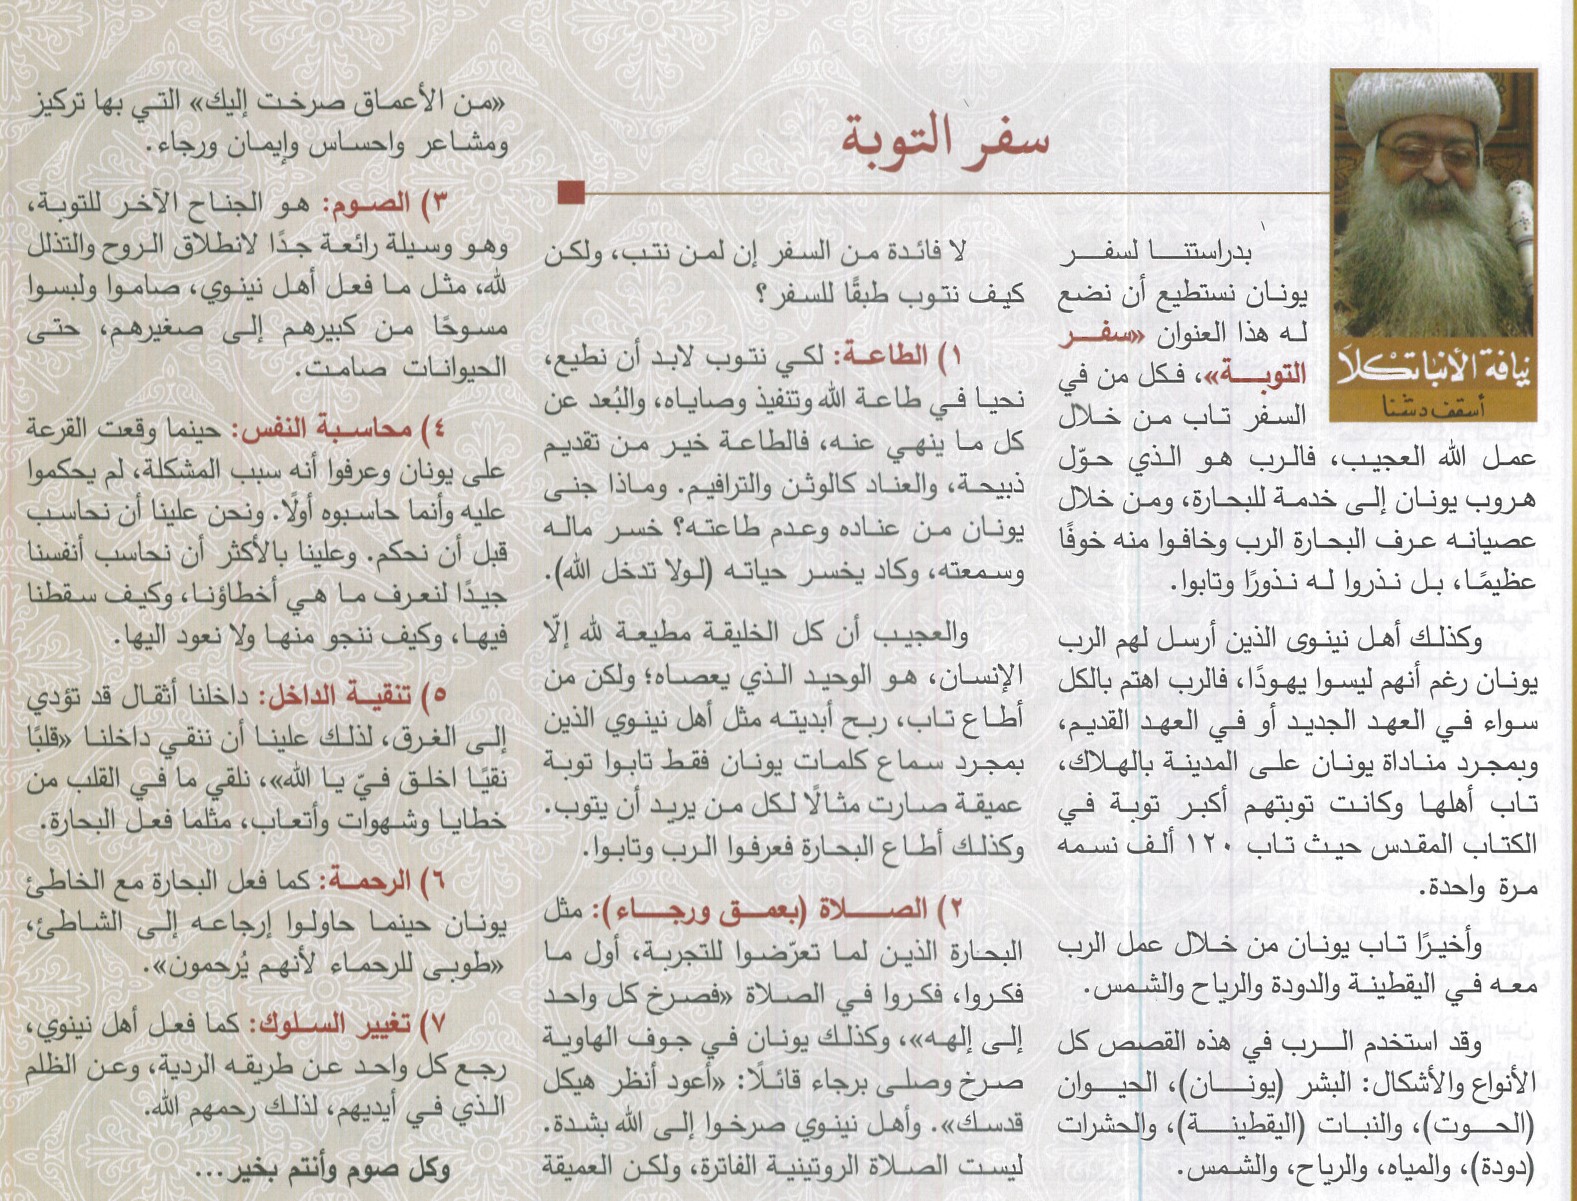 سفر التوبة
نيافة الأنبا تكلا
أسقف دشنا
بدراستنا لسفر
يونان نستطيع أن نضع
له هذا العنوان «سفر
التوبة»، فكل من في
السفر تاب من خلال
عمل الله العجيب، فالرب هو الذي حوّل
هروب يونان إلى خدمة للبحارة، ومن خلال
عصيانه عرف البحارة الرب وخافوا منه خوفًا
عظيمًا، بل نذروا له نذورًا وتابوا.
وكذلك أهل نينوى الذين أرسل لهم الرب
يونان رغم أنهم ليسوا يهودًا، فالرب اهتم بالكل
سواء في العهد الجديد أو في العهد القديم،
وبمجرد مناداة يونان على المدينة بالهلاك،
تاب أهلها وكانت توبتهم أكبر توبة في
الكتاب المقدس حيث تاب ١٢٠ ألف نسمه
مرة واحدة.
وأخيرًا تاب يونان من خلال عمل الرب
معه في اليقطينة والدودة والرياح والشمس.
وقد استخدم الرب في هذه القصص كل
الأنواع والأشكال: البشر (يونان)، الحيوان
(الحوت)، والنبات (اليقطينة)، والحشرات
(دودة)، والمياه، والرياح، والشمس.
لا فائدة من السفر إن لمن نتب، ولكن
كيف نتوب طبقًا للسفر؟
١) الطاعة: لكي نتوب لابد أن نطيع،
نحيا في طاعة الله وتنفيذ وصاياه، والبُعد عن
كل ما ينهي عنه، فالطاعة خير من تقديم
ذبيحة، والعناد كالوثن والترافيم. وماذا جنى
يونان من عناده وعدم طاعته؟ خسر ماله
وسمعته، وكاد يخسر حياته (لولا تدخل الله).
والعجيب أن كل الخليقة مطيعة لله إلّا
الإنسان، هو الوحيد الذي يعصاه؛ ولكن من
أطاع تاب، ربح أبديته مثل أهل نينوي الذين
بمجرد سماع كلمات يونان فقط تابوا توبة
عميقة صارت مثالًا لكل من يريد أن يتوب.
وكذلك أطاع البحارة فعرفوا الرب وتابوا.
٢) الصلاة (بعمق ورجاء): مثل
البحارة الذين لما تعرّضوا للتجربة، أول ما
فكروا، فكروا في الصلاة «فصرخ كل واحد
إلى إلهه»، وكذلك يونان في جوف الهاوية
صرخ وصلى برجاء قائلًا: «أعود أنظر هيكل
قدسك». وأهل نينوي صرخوا إلى الله بشدة.
ليست الصلاة الروتينية الفاترة، ولكن العميقة
«من الأعماق صرخت إليك» التي بها تركيز
ومشاعر واحساس وإيمان ورجاء.
٣) الصوم: هو الجناح الآخر للتوبة،
وهو وسيلة رائعة جدًا لانطلاق الروح والتذلل
لله، مثل ما فعل أهل نينوي، صاموا ولبسوا
مسوحًا من كبيرهم إلى صغيرهم، حتى
الحيوانات صامت.
٤) محاسبة النفس: حينما وقعت القرعة
على يونان وعرفوا أنه سبب المشكلة، لم يحكموا
عليه وأنما حاسبوه أولًا. ونحن علينا أن نحاسب
قبل أن نحكم. وعلينا بالأكثر أن نحاسب أنفسنا
جيدًا لنعرف ما هي أخطاؤنا، وكيف سقطنا
فيها، وكيف ننجو منها ولا نعود اليها.
٥) تنقية الداخل: داخلنا أثقال قد تؤدي
إلى الغرق، لذلك علينا أن ننقي داخلنا «قلبًا
نقيًا اخلق فيّ يا الله»، نلقي ما في القلب من
خطايا وشهوات وأتعاب، مثلما فعل البحارة.
٦) الرحمة: كما فعل البحارة مع الخاطئ
يونان حينما حاولوا إرجاعه إلى الشاطئ،
«طوبى للرحماء لأنهم يُرحمون».
٧) تغيير السلوك: كما فعل أهل نينوي،
رجع كل واحد عن طريقه الردية، وعن الظلم
الذي في أيديهم، لذلك رحمهم الله.
وكل صوم وأنتم بخير...